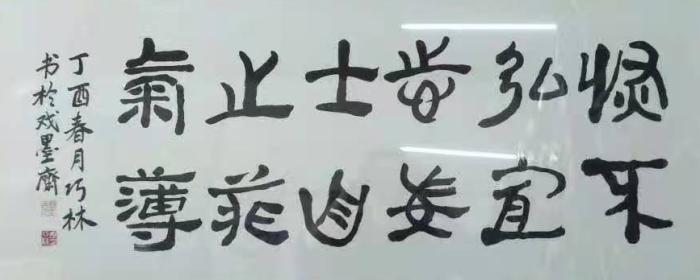 恢弘志士之氣
不宜妄自菲薄
丁酉春月巧林
书於戏墨齋